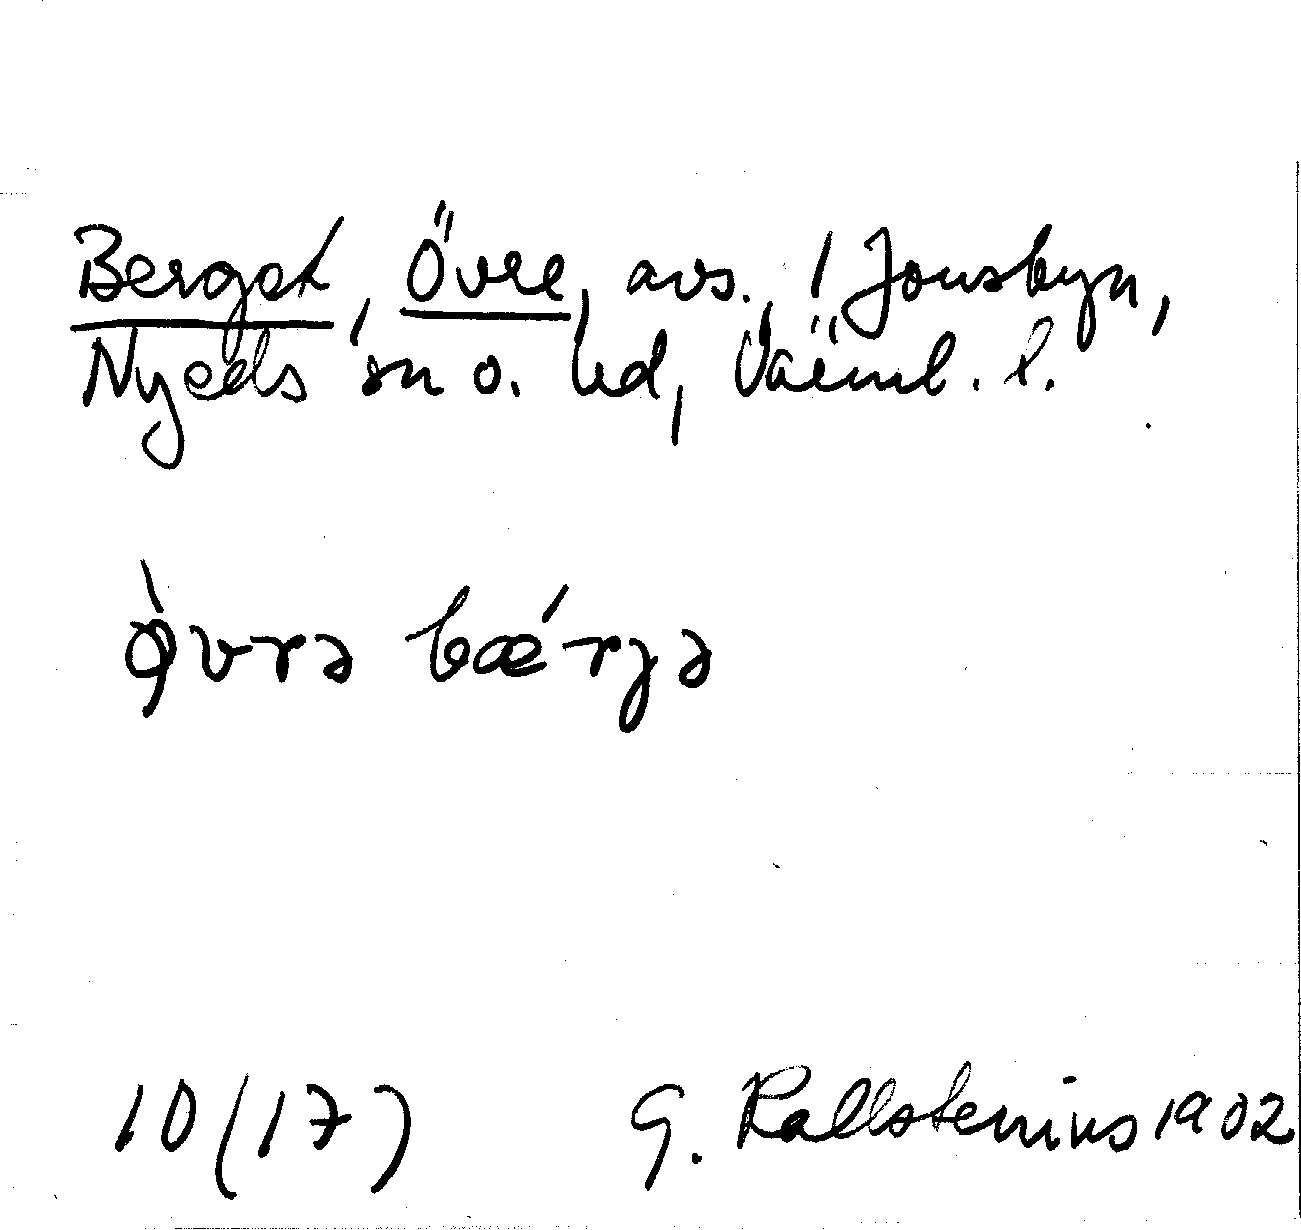 Berget, Övre, avs., 1 Jonsbyn,
Nyeds sn o. hd, Värml. l.
ǫ̀vrə bǽrjə
10 (17) G. Kallstenius 1902